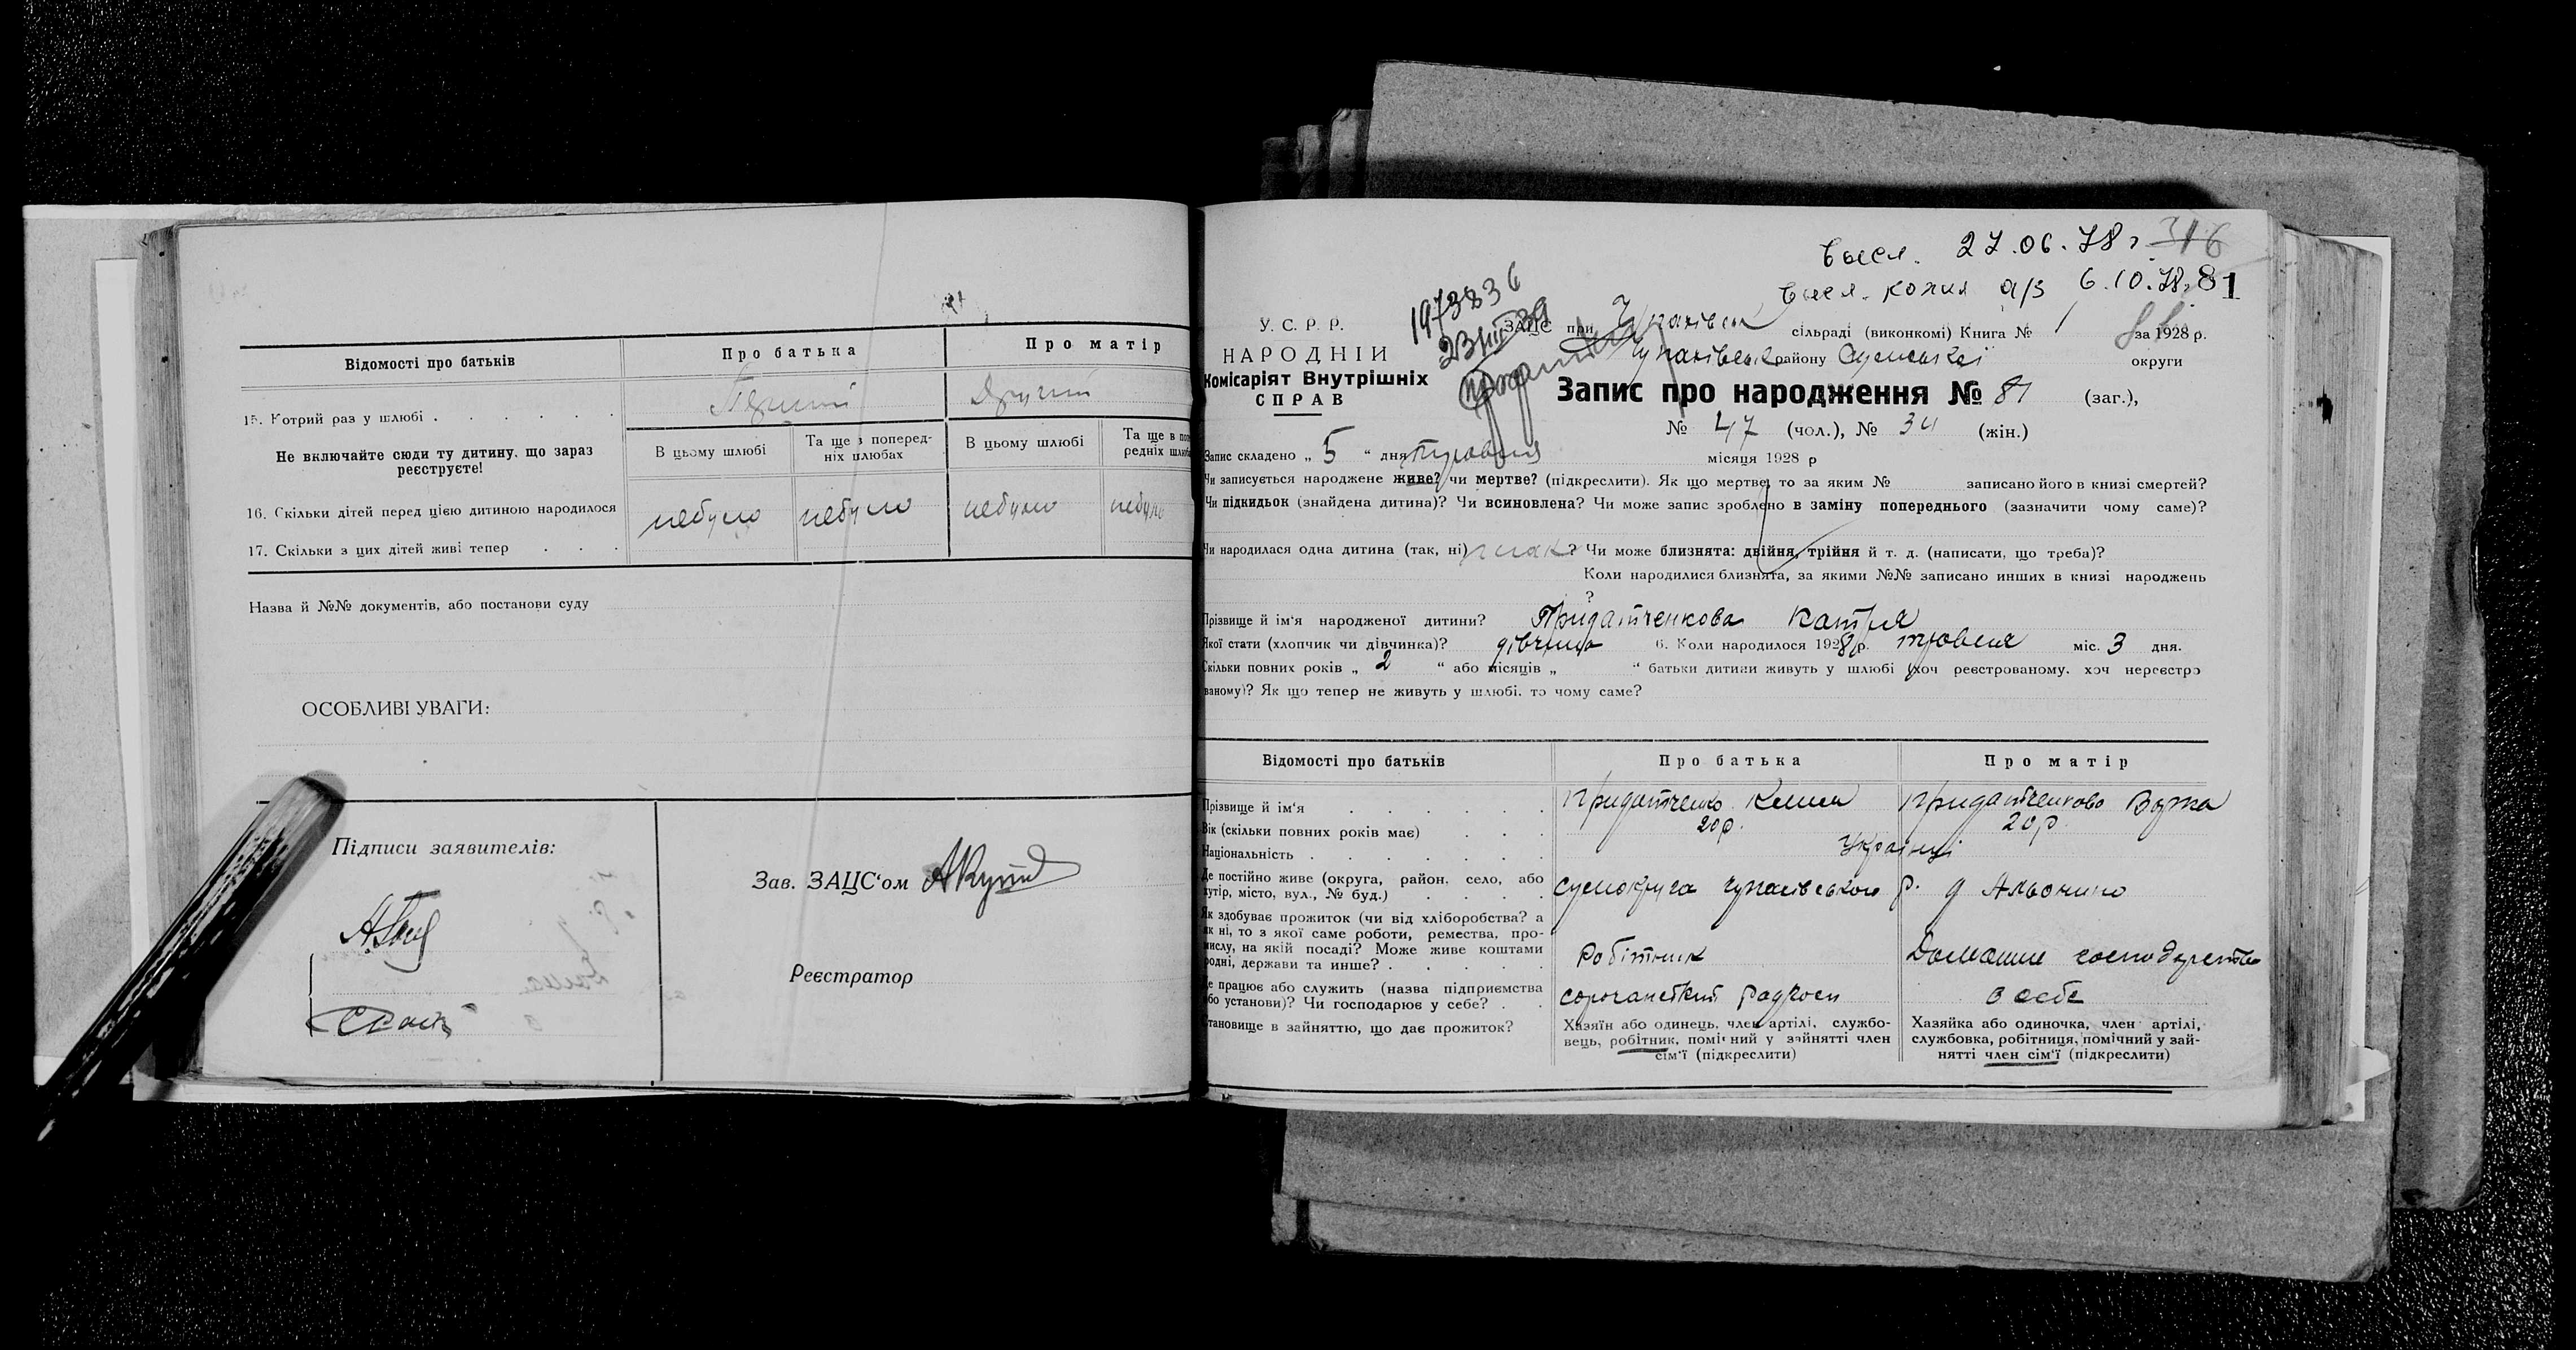 Відомості про батьків
Про батька
Про матір
15. Котрий раз у шлюбі
Перший
Другий
Не включайте сюди ту дитину, що зараз реєструєте!
В цьому шлюбі
Та ще в поперед-
ніх шлюбах
В цьому шлюбі
Та ще в по
редніх шлюб
16. Скільки дітей перед цією дитиною народилося
небуло
небуло
небуло
небуло
17. Скільки з цих дітей живі тепер
Назва й №№ документів, або постанови суду
ОСОБЛИВІ УВАГИ:
Підписи заявителів:
Зав. ЗАЦС‘ом
Реєстратор
высл. 27.06.78г 316
высл. копия а/з 6.10.78г 81
1973836
У. С. Р. Р.
НАРОДНІЙ
Комісаріят Внутрішніх
СПРАВ
ЗАЦС при Чупахівськ сільраді (виконкомі) Книга № 1 за 1928 р.
Чупахівськ району Сумської округи
Запис про народження № 81 (заг.),
№ 47 (чол.), № 34 (жін.)
Запис складено „ 5 “ дня Травня місяця 1928 р
Чи записується народжене живе? чи мертве? (підкреслити). Як що мертве, то за яким № записано його в книзі смертей?
Чи підкидьок (знайдена дитина)? Чи всиновлена? Чи може запис зроблено в заміну попереднього (зазначити чому саме)?
Чи народилася одна дитина (так, ні) так? Чи може близнята: двійня, трійня й т. д. (написати, що треба)?
Коли народилися близнята, за якими №№ записано инших в книзі народжень
?
Прізвище й ім‘я народженої дитини? Придатченкова Катря
Якої стати (хлопчик чи дівчинка)? дівчина 6. Коли народилося 1928 р. травня міс. 3 дня.
Скільки повних років „ 2 “ або місяців „ “ батьки дитини живуть у шлюбі (хоч реєстрованому, хоч нереєстро
ваному)? Як що тепер не живуть у шлюбі, то чому саме?
Відомості про батьків
Про батька
Про матір
Прізвище й ім‘я
Придатченко Клим
Придатченкова
Вік (скільки повних років має)
20р.
20р
Національність
Українці
Де постійно живе (округа, район, село, або
хутір, місто, вул., № буд.)
Сумокруга Чупахівського р.
Як здобуває прожиток (чи від хліборобства? а
як ні, то з якої саме роботи, ремества, про-
мислу, на якій посаді? Може живе коштами
родні, держави та инше?
Робітник
Домашнє господарство
Де працює або служить (назва підприємства
або установи)? Чи господарює у себе?
радгосп
в себе
Становище в зайняттю, що дає прожиток?
Хазяїн або одинець, член артілі, службо-
вець, робітник, помічний у зайнятті член
сім‘ї (підкреслити)
Хазяйка або одиночка, член артілі,
службовка, робітниця, помічний у зай-
нятті член сім‘ї (підкреслити)